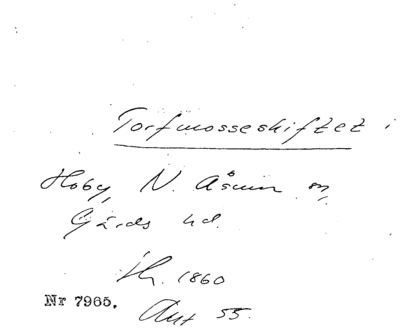 Torfmosseskiftet i
Hoby, N. Åsum sn,
Gärds hd.
1860
Nr 7965.
Ant 55.